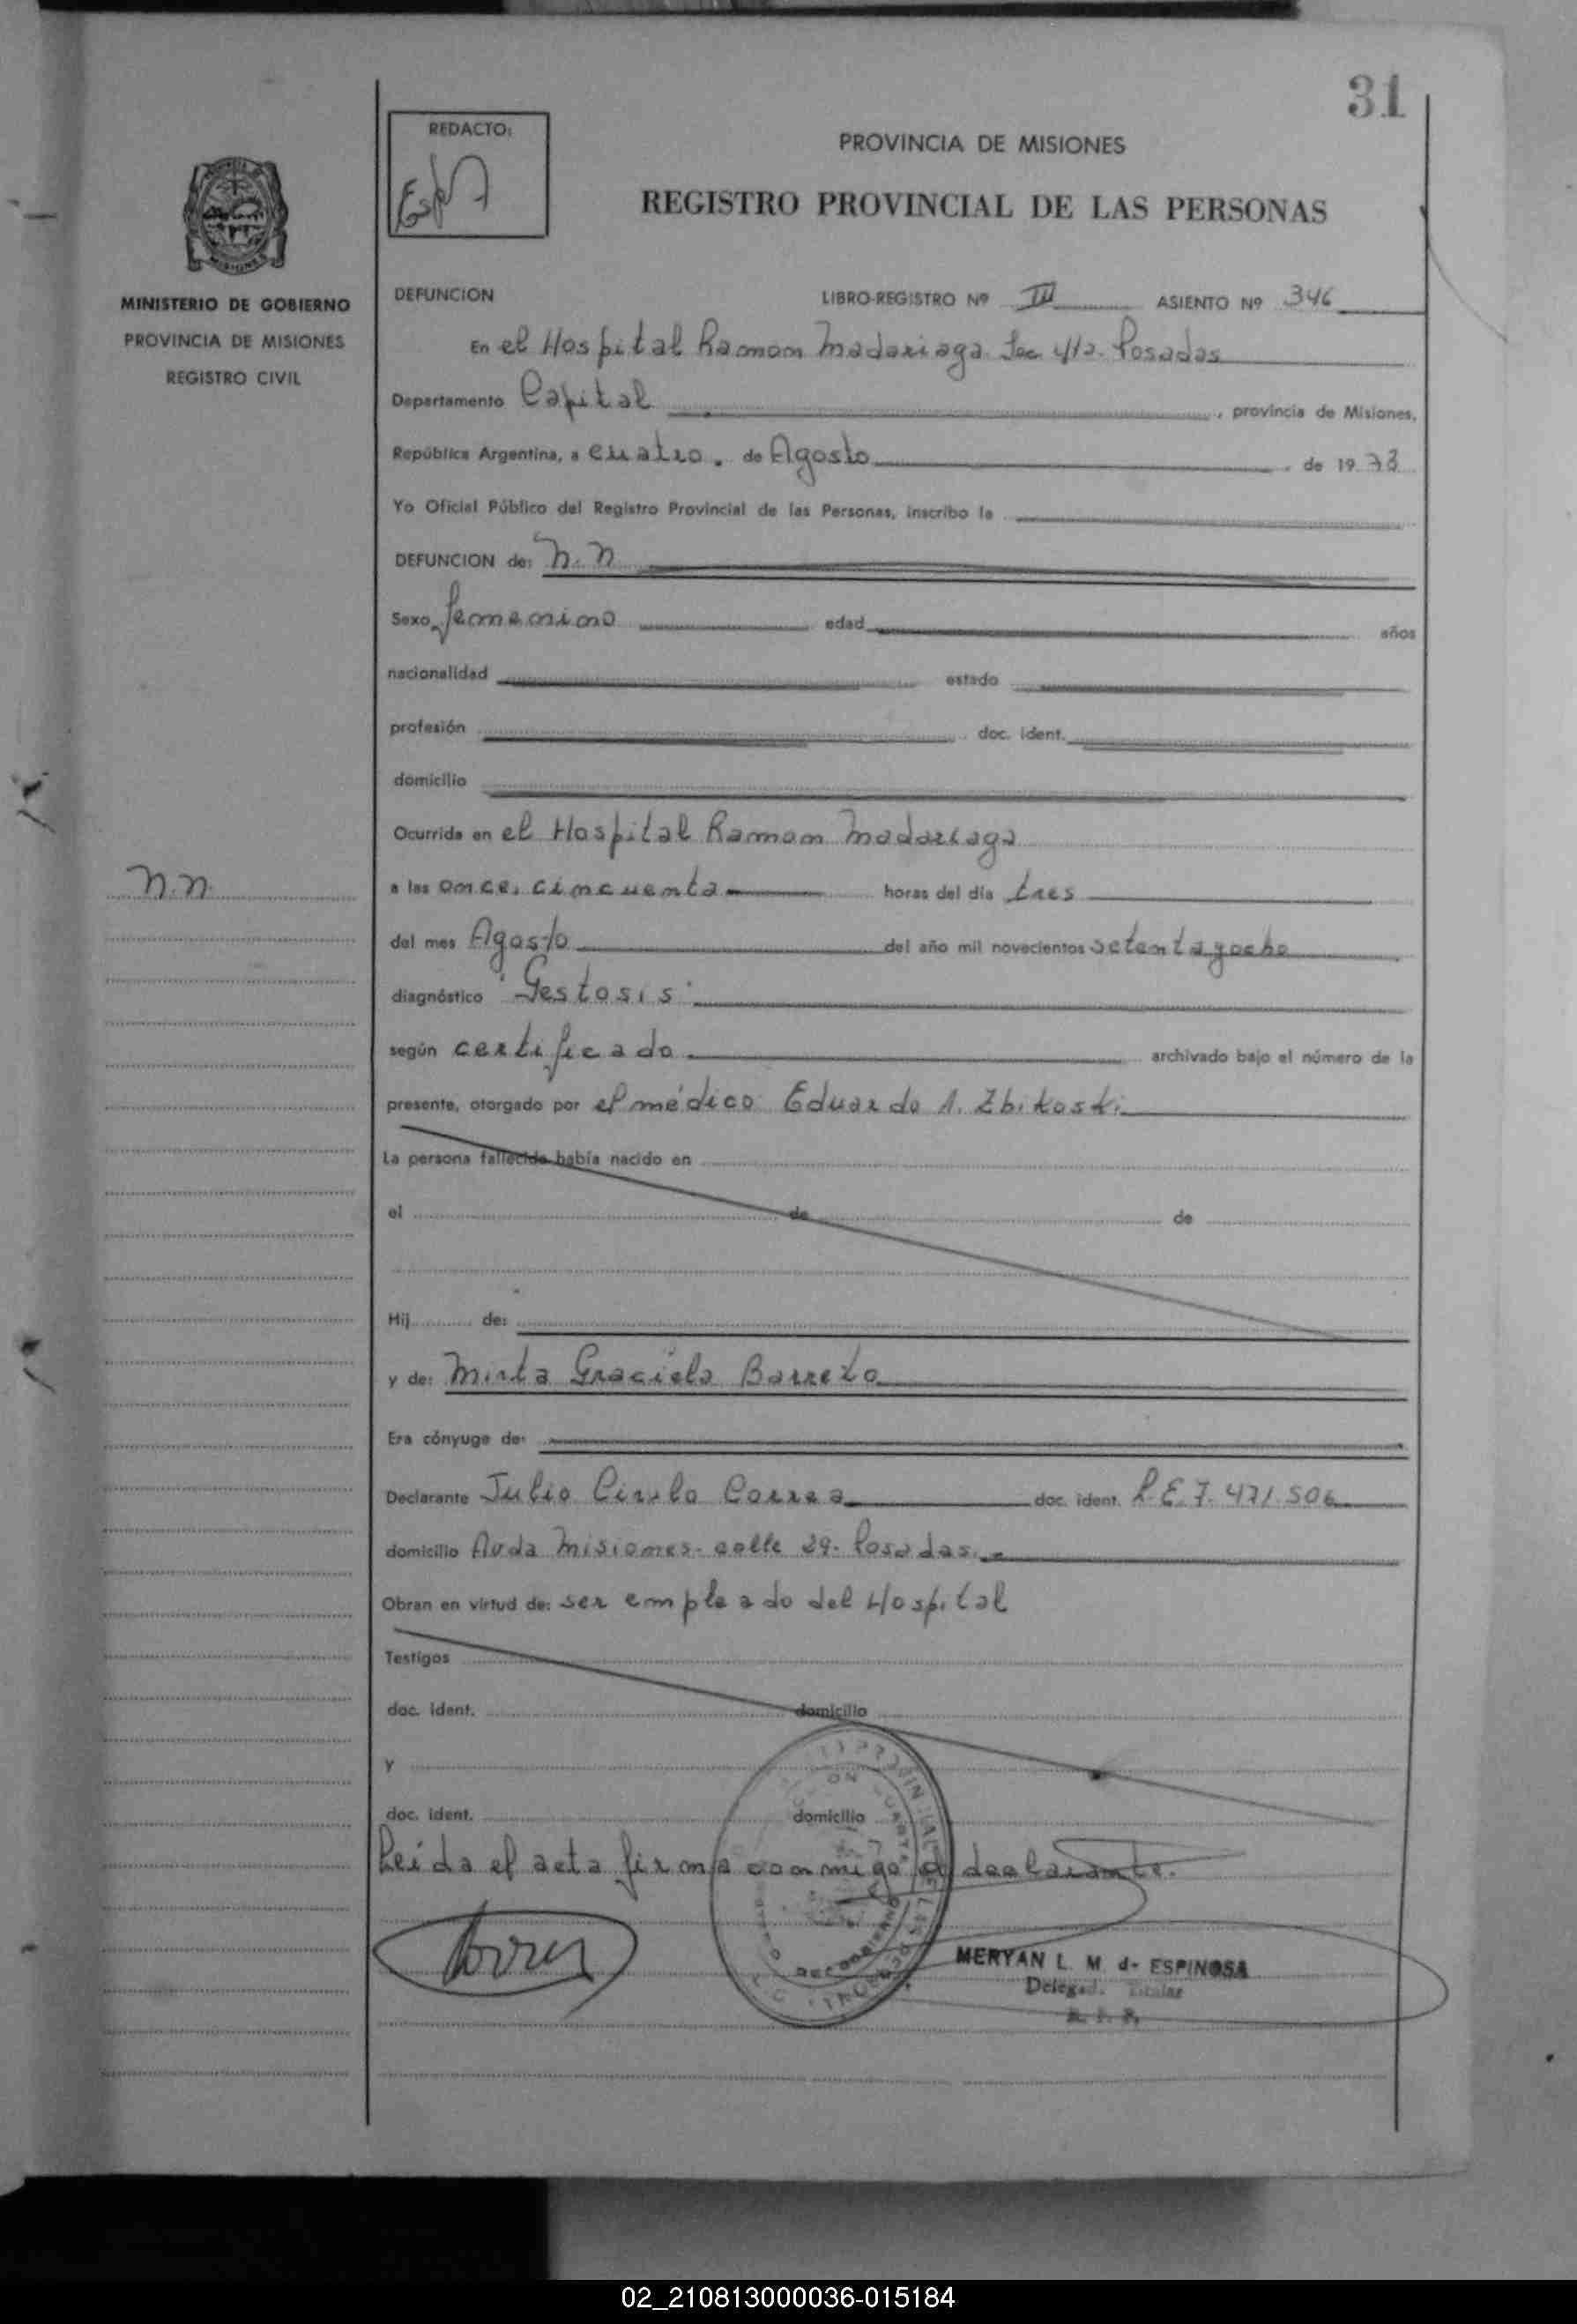 31
REDACTO:
PROVINCIA DE MISIONES
REGISTRO PROVINCIAL DE LAS PERSONAS
MISIONES
MINISTERIO DE GOBIERNO
PROVINCIA DE MISIONES
REGISTRO CIVIL
DEFUNCION LIBRO-REGISTRO Nº III ASIENTO Nº 346
En el Hospital Ramon Madariaga Sec 4ta. Posadas
Departamento Capital, provincia de Misiones,
República Argentina, a cuatro. de Agosto, de 1978
Yo Oficial Público del Registro Provincial de las Personas, inscribo la
DEFUNCION de: N.N
Sexo femenino edad años
nacionalidad estado
profesión doc. ident.
domicilio
Ocurrida en el Hospital Ramon Madariaga
N.N.
a las once, cincuenta horas del día tres
del mes Agosto del año mil novecientos setenta y ocho
diagnóstico "Gestosis"
según certificado archivado bajo el número de la
presente, otorgado por el médico Eduardo A. Zbikoski
La persona fallecida había nacido en
el de de
Hij de:
y de: Mirta Graciela Barreto
Era cónyuge de:
Declarante Julio Cirilo Correa doc. ident. L.E. 7.471.506
domicilio Avda Misiones- calle 29- Posadas.-
Obran en virtud de: ser empleado del Hospital
Testigos
doc. ident. domicilio
y
doc. ident. domicilio
Leida el acta firma conmigo el declarante.
MERYAN L. M. de ESPINOSA
Delegad. Titular
R. P. P.
02_210813000036-015184